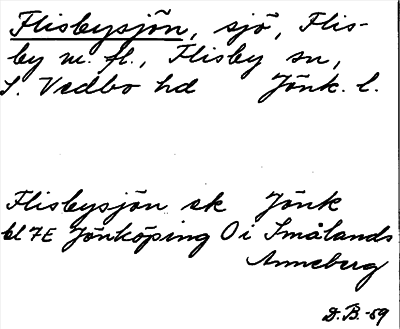 Flisbysjön, sjö, Flis-
by m. fl., Flisby sn,
S. Vedbo hd Jönk. l.
Flisbysjön sk Jönk
bl 7E Jönköping O i Smålands
Anneberg
D.B. -59